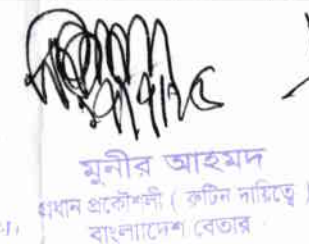 মুনীর আহমদ
প্রধান প্রকৌশলী ( রুটিন দায়িত্বে )
বাংলাদেশ বেতার